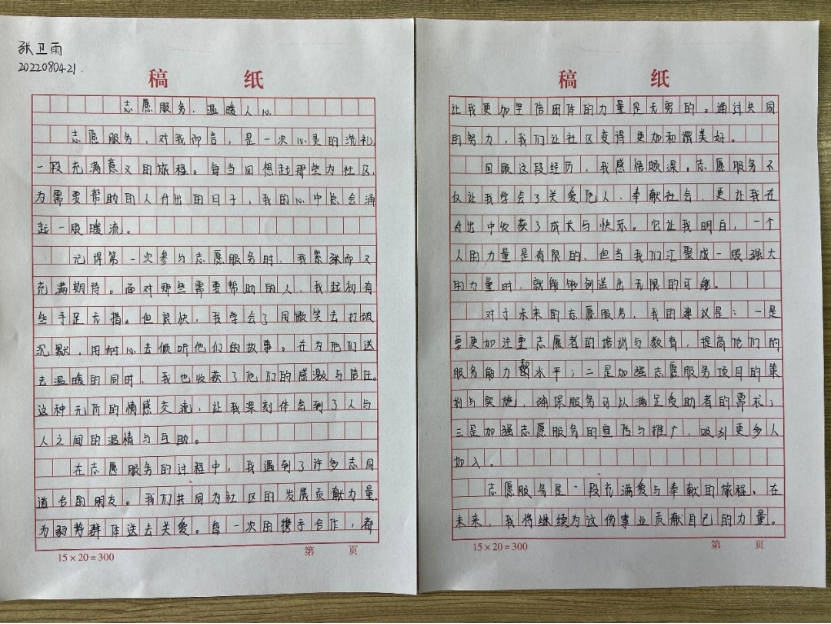 张卫雨
2022080421.
稿 纸
志愿服务，温暖人心
志愿服务，对我而言，是一次心灵的洗礼
一段充满意义的旅程。每当回想起那些为社区，
为需要帮助的人付出的日子，我的心中总会涌
起一股暖流。
记得第一次参与志愿服务时，我紧张而又
充满期待。面对那些需要帮助的人，我起初有
些手足无措。但很快，我学会了用微笑去打破
沉默，用耐心去倾听他们的故事。在为他们送
去温暖的同时，我也收获了他们的感激与信任。
这种无声的情感交流，让我深刻体会到了人与
人之间的温情与互助。
在志愿服务的过程中，我遇到了许多志同
道合的朋友。我们共同为社区的发展贡献力量，
为弱势群体送去关爱。每一次的携手合作，都
15×20=300
第 页
稿 纸
让我更加坚信团体的力量是无穷的。通过共同
的努力，我们让社区变得更加和谐美好。
回顾这段经历，我感悟颇深。志愿服务不
仅让我学会了关爱他人、奉献社会，更让我在
付出中收获了成长与快乐。它让我明白，一个
人的力量是有限的，但当我们汇聚成一股强大
的力量时，就能够创造出无限的可能。
对于未来的志愿服务，我的建议是：一是
要更加注重志愿者的培训与教育，提高他们的
服务能力和水平；二是加强志愿服务项目的策
划与实施，确保服务可以满足受助者的需求；
三是加强志愿服务的宣传与推广，吸引更多人
加入。
志愿服务是一段充满爱与奉献的旅程。在
未来，我将继续为这份事业贡献自己的力量。
15×20=300
第 页